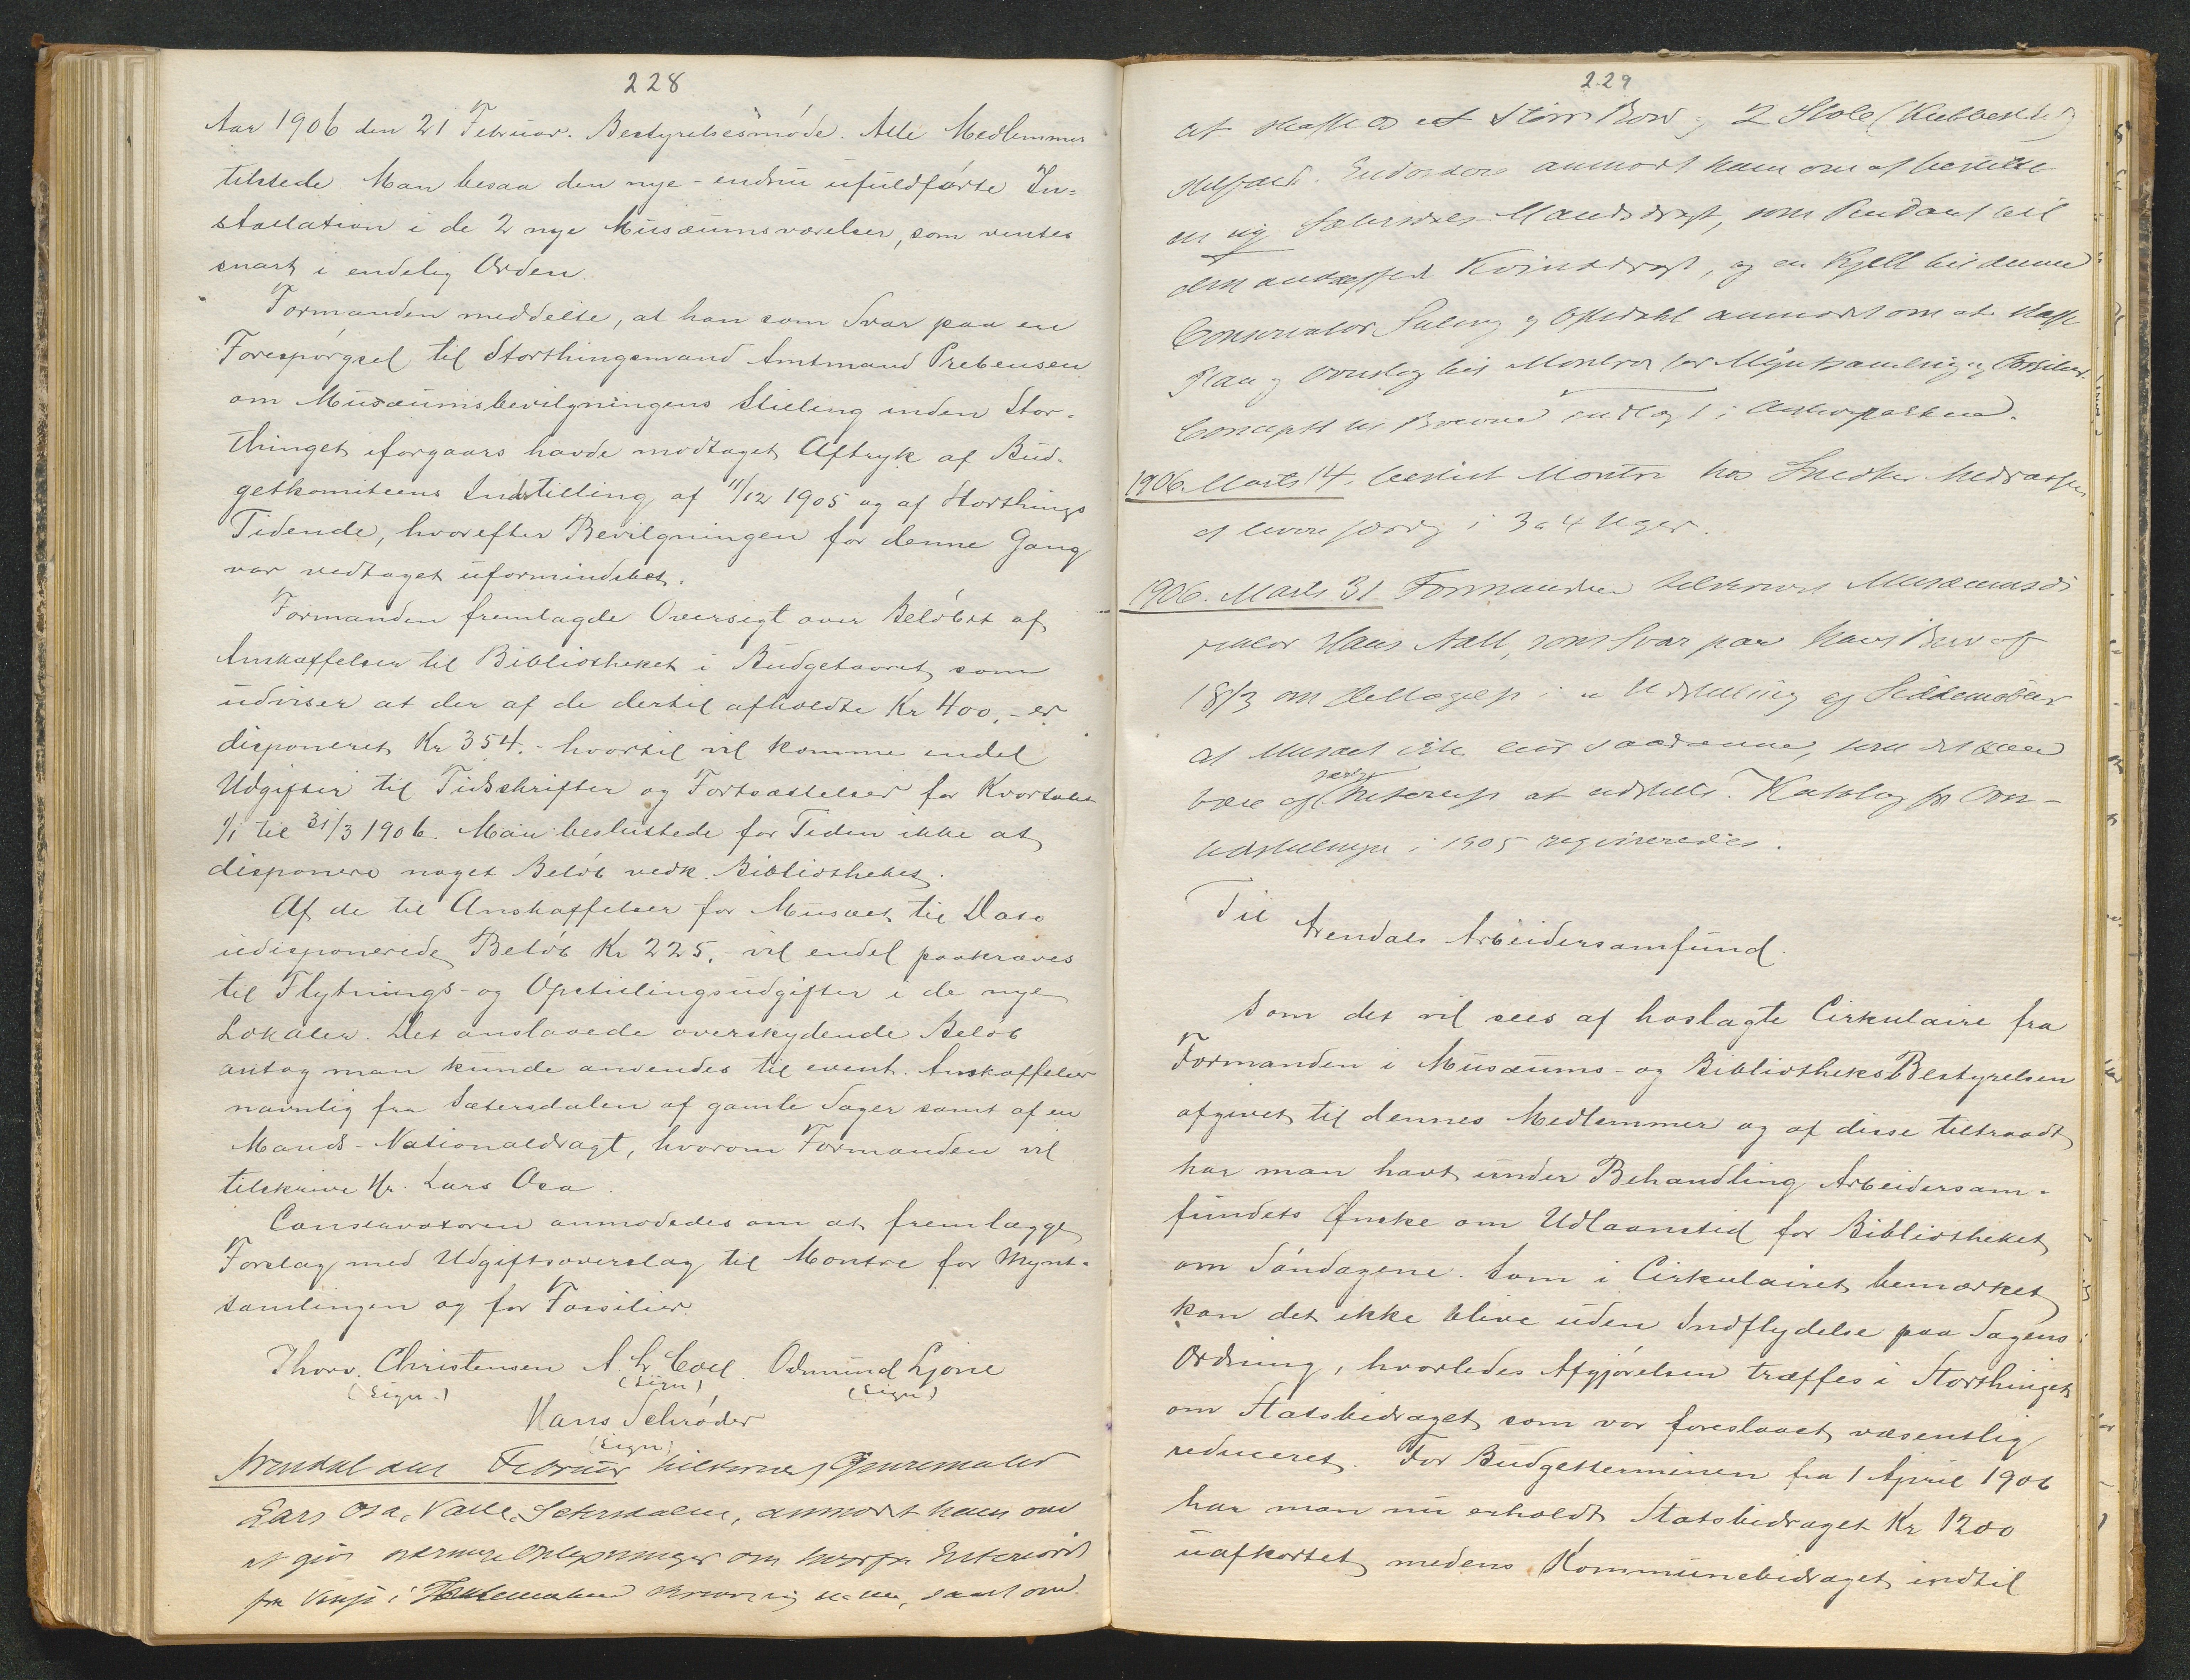 228
Aar 1906 den 21 Februar. Bestyrelsesmøde. Alle Medlemmer
tilstede Man besaa den nye - endnu ufuldførte In=
stallation i de 2 nye Musæumsværelser, som ventes
snart i endelig Orden.
Formanden meddelte, at han som Svar paa en
Forespørgsel til Storthingsmand Amtmand Prebensen
om Musæumsbevilgningens Stilling inden Stor-
thinget iforgaars havde modtaget Aftryk af Bud-
getkomiteens Indstilling af 11/12 1905 og af Storthings
Tidende, hvorefter Bevilgningen for denne Gang
var vedtaget uformindsket.
Formanden fremlagde Oversigt over Beløbet af
Anskaffelser til Bibliotheket i Budgetaaret, som
udviser at der af de dertil afholdte Kr 400,- er
disponeret Kr 354.- hvortil vil komme endel
Udgifter til Tidsskrifter og Fortsættelser for Kvartalet
1/1 til 31/3 1906. Man besluttede for Tiden ikke at
disponere noget Beløb vedk. Bibliotheket.
Af de til Anskaffelser for Musæet til Dato
udisponerede Beløb Kr 225,- vil endel paakræves
til Flytnings- og Opstillingsudgifter i de nye
Lokaler. Det anslaaede overskydende Beløb
antog man kunde anvendes til event. Anskaffelser
navnlig fra Sætersdalen af gamle Sager samt af en
Mands-Nationaldragt, hvorom Formanden vil
tilskrive Hr. Lars Osa.
Conservatoren anmodedes om at fremlægge
Forslag med Udgiftsoverslag til Montre for Mynt-
samlingen og for Fossilier.
Thorv. Christensen A. Chr Coll. Odmund Ljone
(Sign.) (Sign) (Sign)
Hans Schrøder
(Sign)
Arendal den Februar tilskrevet Genremaler
Lars Osa, Valle, Setersdalen, anmodet ham om
at give nærmere Oplysninger om hvorfra Interiøret
fra Vinje i Thelemarken skriver sig, samt om
229
at skaffe os et Bord og 2 Stole (Kubbestole)
Endvidere anmodet ham om at bestille
en ny Sætersdals Mandsdragt, som Pendant til
den anskaffede Kvindedragt, og en Kjell til denne
Conservator og anmodet om at skaffe
Plan og Overslag til Montre for Myntsamling og Fossilier.
Concepter til Brevene indlagt i
1906. Marts 14. bestilt Montre hos Snedker
at levere færdig i 3 a 4 Uger.
1906. Marts 31 Formanden tilskrevet Musæumsdi
rektør Hans Aall, som Svar paa hans Brev af
18/3 om Deltagelse i en Udstilling af
at Musæet ikke eier saadanne, som det kan
være af særlig Interesse at udstille. Katalog for
Udstillingen i 1905 regvireredes.
Til Arendals Arbeidersamfund.
Som det vil sees af hoslagte Cirkulaire fra
Formanden i Musæums- og Bibliotheks Bestyrelsen
afgivet til dennes Medlemmer og af disse tiltraadt
har man havt under Behandling Arbeidersam-
fundets Ønske om Udlaanstid for Bibliotheket
om Søndagene. Som i Cirkulairet bemærket
kan det ikke blive uden Indflydelse paa Sagens
Ordning, hvorledes Afgjørelsen træffes i Storthinget
om Statsbidraget som var foreslaaet væsentlig
reduceret. For Budgetterminen fra 1 April 1906
har man nu erholdt Statsbidraget Kr 1200
uafkortet medens Kommunebidraget indtil